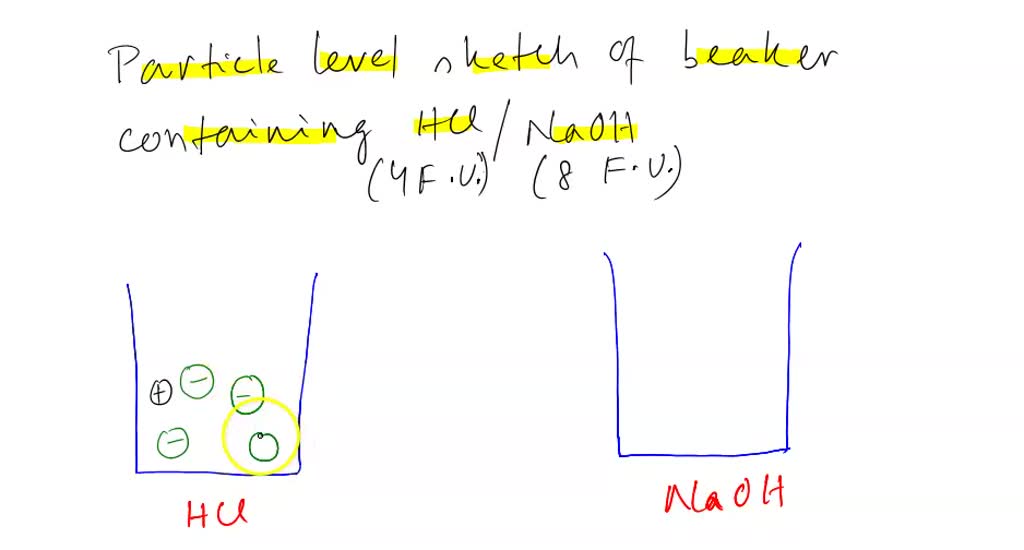 Particle level sketch of beaker
containing HCl / NaOH
(4 F.U.) (8 F.U.)
+ − −
−
HCl NaOH